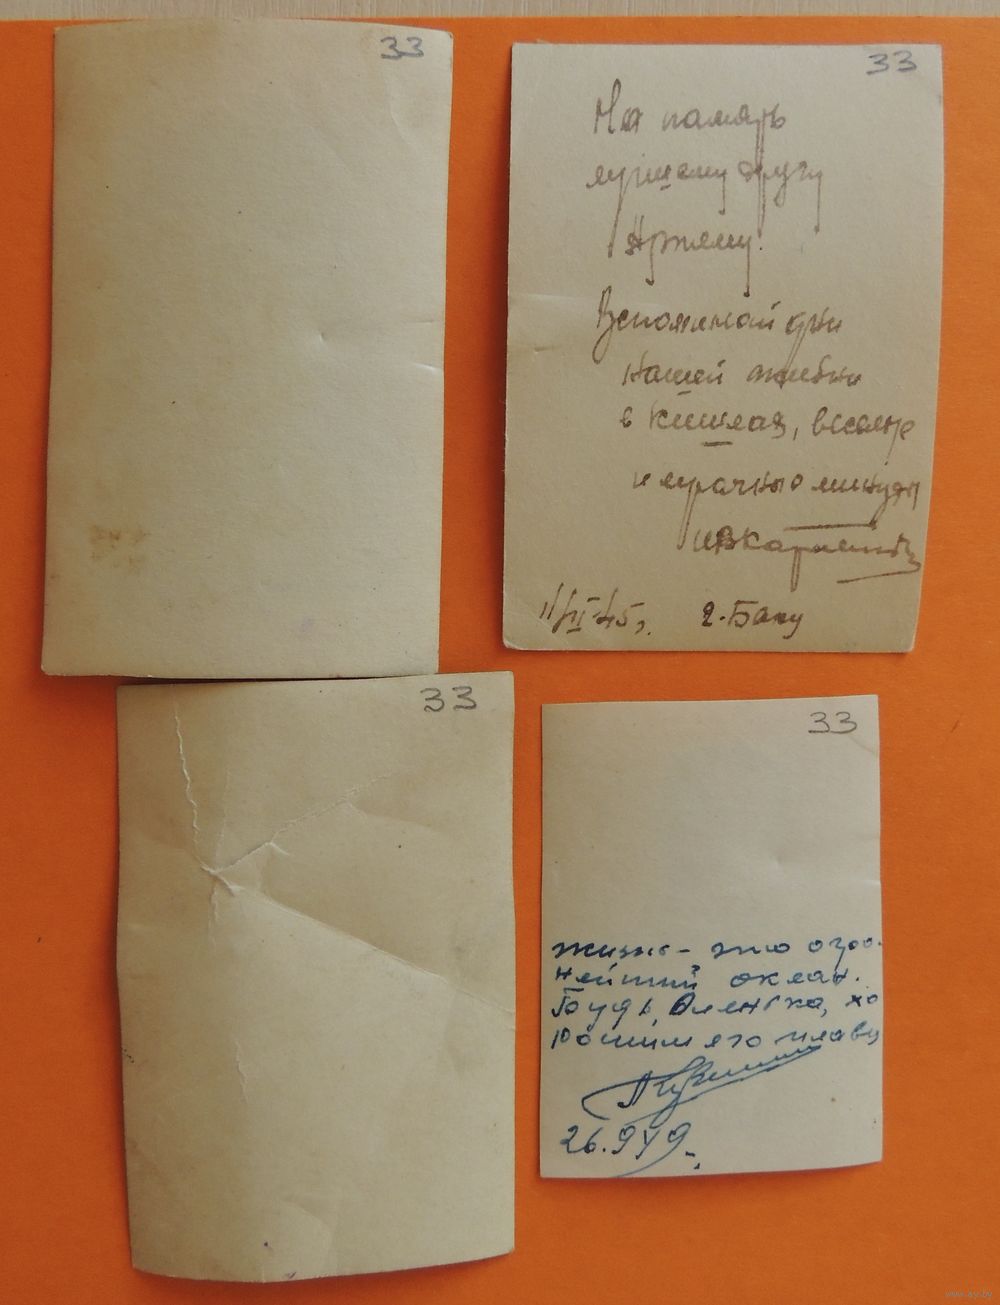 33
33
На память
лучшему другу
Артему.
Вспоминай дни
нашей жизни
в Кишлах, веселые
и мрачные минуты
г. Баку
33
33
Жизнь – это огро-
нейший океан.
Будь, Оленька, хо
рошим его плавц
26.9 49
www.ay.by